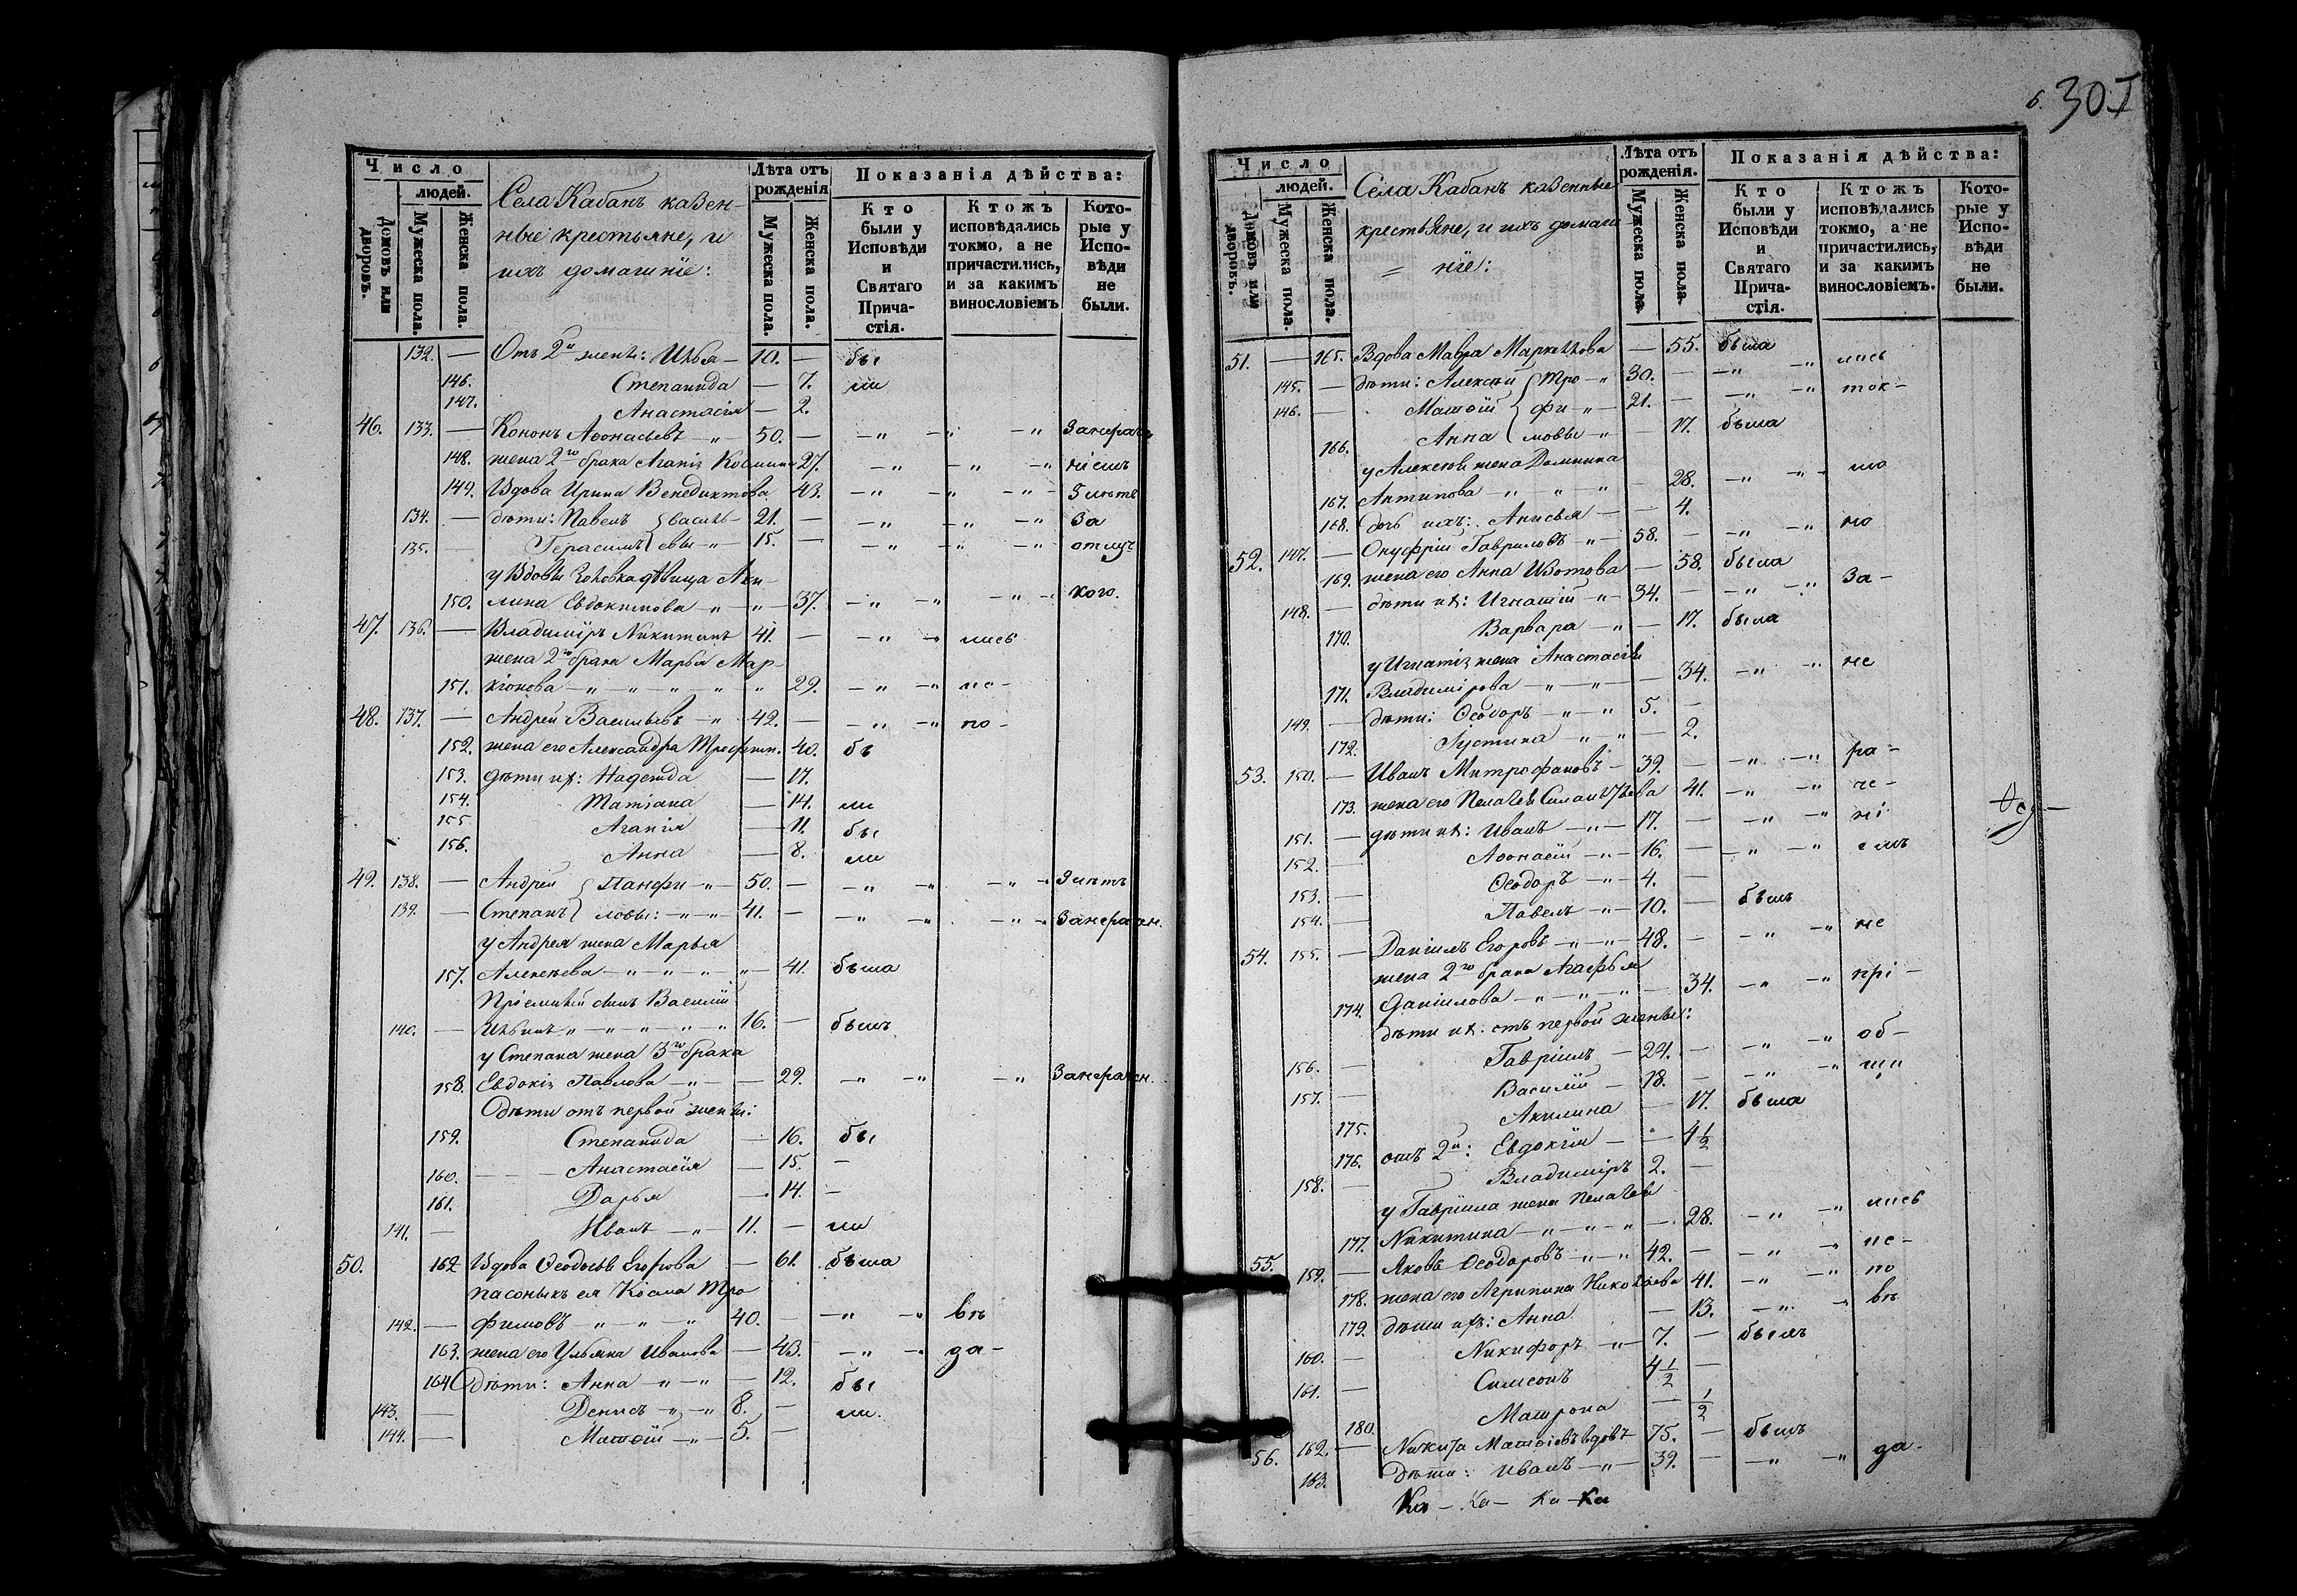 Число
людей.
Домовъ или дворовъ.
Мужеска пола.
Женска пола.
Села Кабанъ казен-
ные крестьяне, и
ихъ домашніе:
Лѣта отъ рожденія
Мужеска пола.
Женска пола.
Показанія дѣйства:
Кто были у Исповѣди и Святаго Прича-стія.
Ктожъ исповѣдались токмо, а не причастились, и за какимъ винословіемъ
Кото-рые у Испо-вѣди не были.
132. — Отъ 2й жены: Илья — 10. — бы
146. Степанида — 7. ли
147. Анастасія — 2.
46. 133. — Кононъ Аѳонасьевъ — „ — 50. — — „ — „ — „
148. жена 2го брака Агапія Космина 27. — „ — „ — „ ніемъ
149. Вдова Ирина Венедиктова 43. — „ — „ — „ —
134. — дѣти: Павелъ Василь- 21. — — „ — „ — „ За
135. — Герасимъ евы — „ — 15. — — „ — „ — „ отлуч
у Вдовы золовка дѣвица Аку-
150. лина Евдокимова — „ — „ — 37. — „ — „ — „ — кого.
47. 136. — Владиміръ Никитинъ 41. — — „ — „ лись
жена 2го брака Марья Мар-
151. кіонова — „ — „ — „ „ „ 29. — „ — „ ис-
48. 137. — Андрей Васильевъ — „ 42. — — „ — „ по-
152. жена его Александра Трофим. 40. бы
153. дѣти их: Надежда — 17.
154. Татіана — 14. ли
155 Агапія — 11. бы
156. Анна — 8. ли
49. 138. — Андрей Панфи- „ — 50. — — „ — „ — „
139. — Степанъ ловы: — „ — „ 41. — — „ — „ — „ Занерачен.
у Андрея жена Марья
157. Алексѣева — „ — „ — „ „ — 41. была
Пріемный сынъ Василій
140. — Ильинъ „ — „ — „ — „ — „ 16. — былъ
у Степана жена 3го брака
158. Евдокія Павлова — „ — — 29. — „ — „ — „ Занерачен.
Дѣти отъ первой жены:
159. Степанида — 16. бы
160. — — Анастасія — 15. —
161. Дарья — 14. —
141. — Иванъ — „ — 11. — ли
50. 162 Вдова Ѳеодосья Егорова — 61. была
пасынокъ ея Косма Тро
142. — фимовъ — „ — „ — „ 40. — — „ — „ въ
163. жена его Ульяна Иванова — 43. — „ — „ да-
164 Дѣти: Анна — „ — „ — 12. бы
143. — Денисъ — „ — „ 8. — ли.
144. — Матѳій — „ — 5. —
6. 301
Число
людей.
Домовъ или дворовъ.
Мужеска пола.
Женска пола.
Села Кабанъ казенные
крестьяне, и ихъ домаш
= ніе:
Лѣта отъ рожденія.
Мужеска пола.
Женска пола.
Показанія дѣйства:
Кто были у Исповѣди и Святаго Прича-стія.
Ктожъ исповѣдались токмо, а не причастились, и за какимъ винословіемъ.
Кото-рые у Испо-вѣди не были.
51. — 165. Вдова Мавра Маркелова — 55. была
145. — дѣти: Алексѣй Тро- „ 30. — — „ — „ лись
146. — Матѳій фи- „ — 21. — — „ — „ ток-
166. Анна мовы — „ — 17. была
у Алексѣя жена Домнина
167. Антипова — „ „ „ — 28. — „ — „ — мо
168. дочь ихъ: Анисья — — 4.
52. 147. — Онуфрій Гавриловъ „ — 58. — — „ — „ но
169. жена его Анна Изотова — 58. была
148. — дѣти их: Игнатій — „ 34. — — „ — „ За-
170. Варвара — „ — 17. была
у Игнатія жена Анастасія
171. Владимірова — „ — „ — — 34. — „ — „ не
149. — дѣти: Ѳеодоръ — „ — „ 5. —
172. Іустина „ „ — 2.
53. 150. — Иванъ Митрофановъ — 39. — — „ — „ ра-
173. жена его Пелагея 41. — „ — „ че-
151. — дѣти их: Иванъ — „ — 17. — — „ — „ ні
152. — Аѳонасій — „ — 16. — — „ — „ емъ
153. — Ѳеодоръ — „ — 4. —
154. — Павелъ — „ — 10. — былъ
54. 155. — Даніилъ Егоровъ — „ — „ 48. — — „ — „ не
жена 2го брака Агафья
174. Даніилова — „ — „ — „ — 34. — „ — „ прі-
дѣти их: отъ первой жены:
156. — Гавріилъ — 24. — — „ — „ об-
157. — Василій — 18. — — „ — „ щи
175. Акилина — 17. была
176. отъ 2й: Евдокія — — 4 1/2
158. — Владиміръ 2. —
у Гавріила жена Пелагея
177. Никитина — „ — „ — „ — 28. — „ — „ лись
55. 159. — Яковъ Ѳеодоровъ — „ — „ 42. — — „ — „ ис-
178. жена его Агрипина Николаева 41. — „ — „ по
179. дѣти их: Анна — 13. — „ — въ
160. — Никифоръ — „ — 7. — былъ
161. — Симеонъ 4 1/2 —
180. Матрона — 1/2
56. 162. — Никита Матѳіевъ вдовъ 75. — былъ
163. Дѣти: Иванъ — „ — 39. — — „ — „ да-
Ка — Ка — Ка — Ка